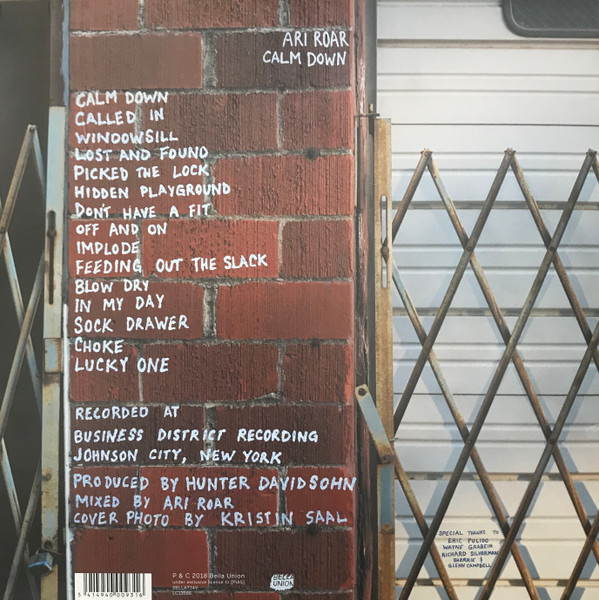 ARI ROAR
CALM DOWN
CALM DOWN
CALLED IN
WINDOWSILL
LOST AND FOUND
PICKED THE LOCK
HIDDEN PLAYGROUND
DON'T HAVE A FIT
OFF AND ON
IMPLODE
FEEDING OUT THE SLACK
BLOW DRY
IN MY DAY
SOCK DRAWER
CHOKE
LUCKY ONE
RECORDED AT
BUSINESS DISTRICT RECORDING
JOHNSON CITY, NEW YORK
PRODUCED BY HUNTER DAVIDSOHN
MIXED BY ARI ROAR
COVER PHOTO BY KRISTIN SAAL
SPECIAL THANKS TO
ERIC PULIDO
RICHARD SILVERMAN
GLENN CAMPBELL
P & C 2018 Bella Union
under exclusive license to [PIAS]
5 414940 009316
BELLA UNION